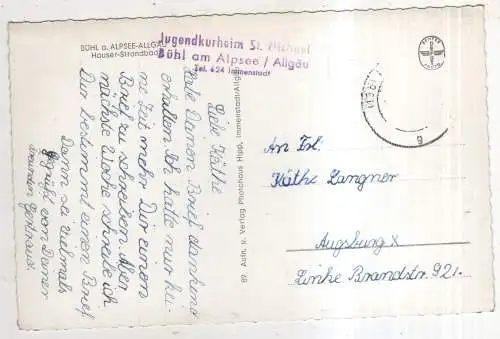 BÜHL a. ALPSEE-ALLGÄU
Hauser-Strandbad
Jugendkurheim St. Michael
Bühl am Alpsee / Allgäu
Tel. 624 Immenstadt
Liebe Käthe
Habe Deinen Brief dankend
erhalten. Ich hatte nur kei-
ne Zeit mehr Dir einen
Brief zu schreiben. Aber
nächste Woche schreibe ich
Dir bestimmt einen Brief.
Dann sei vielmals
gegrüßt von Deiner
Freundin Gertraud.
89 Aufn. u. Verlag Photohaus Hipp, Immenstadt/Allgäu
An Frl.
Käthe Langner
Augsburg X
Linke Brandstr. 92 1.
g